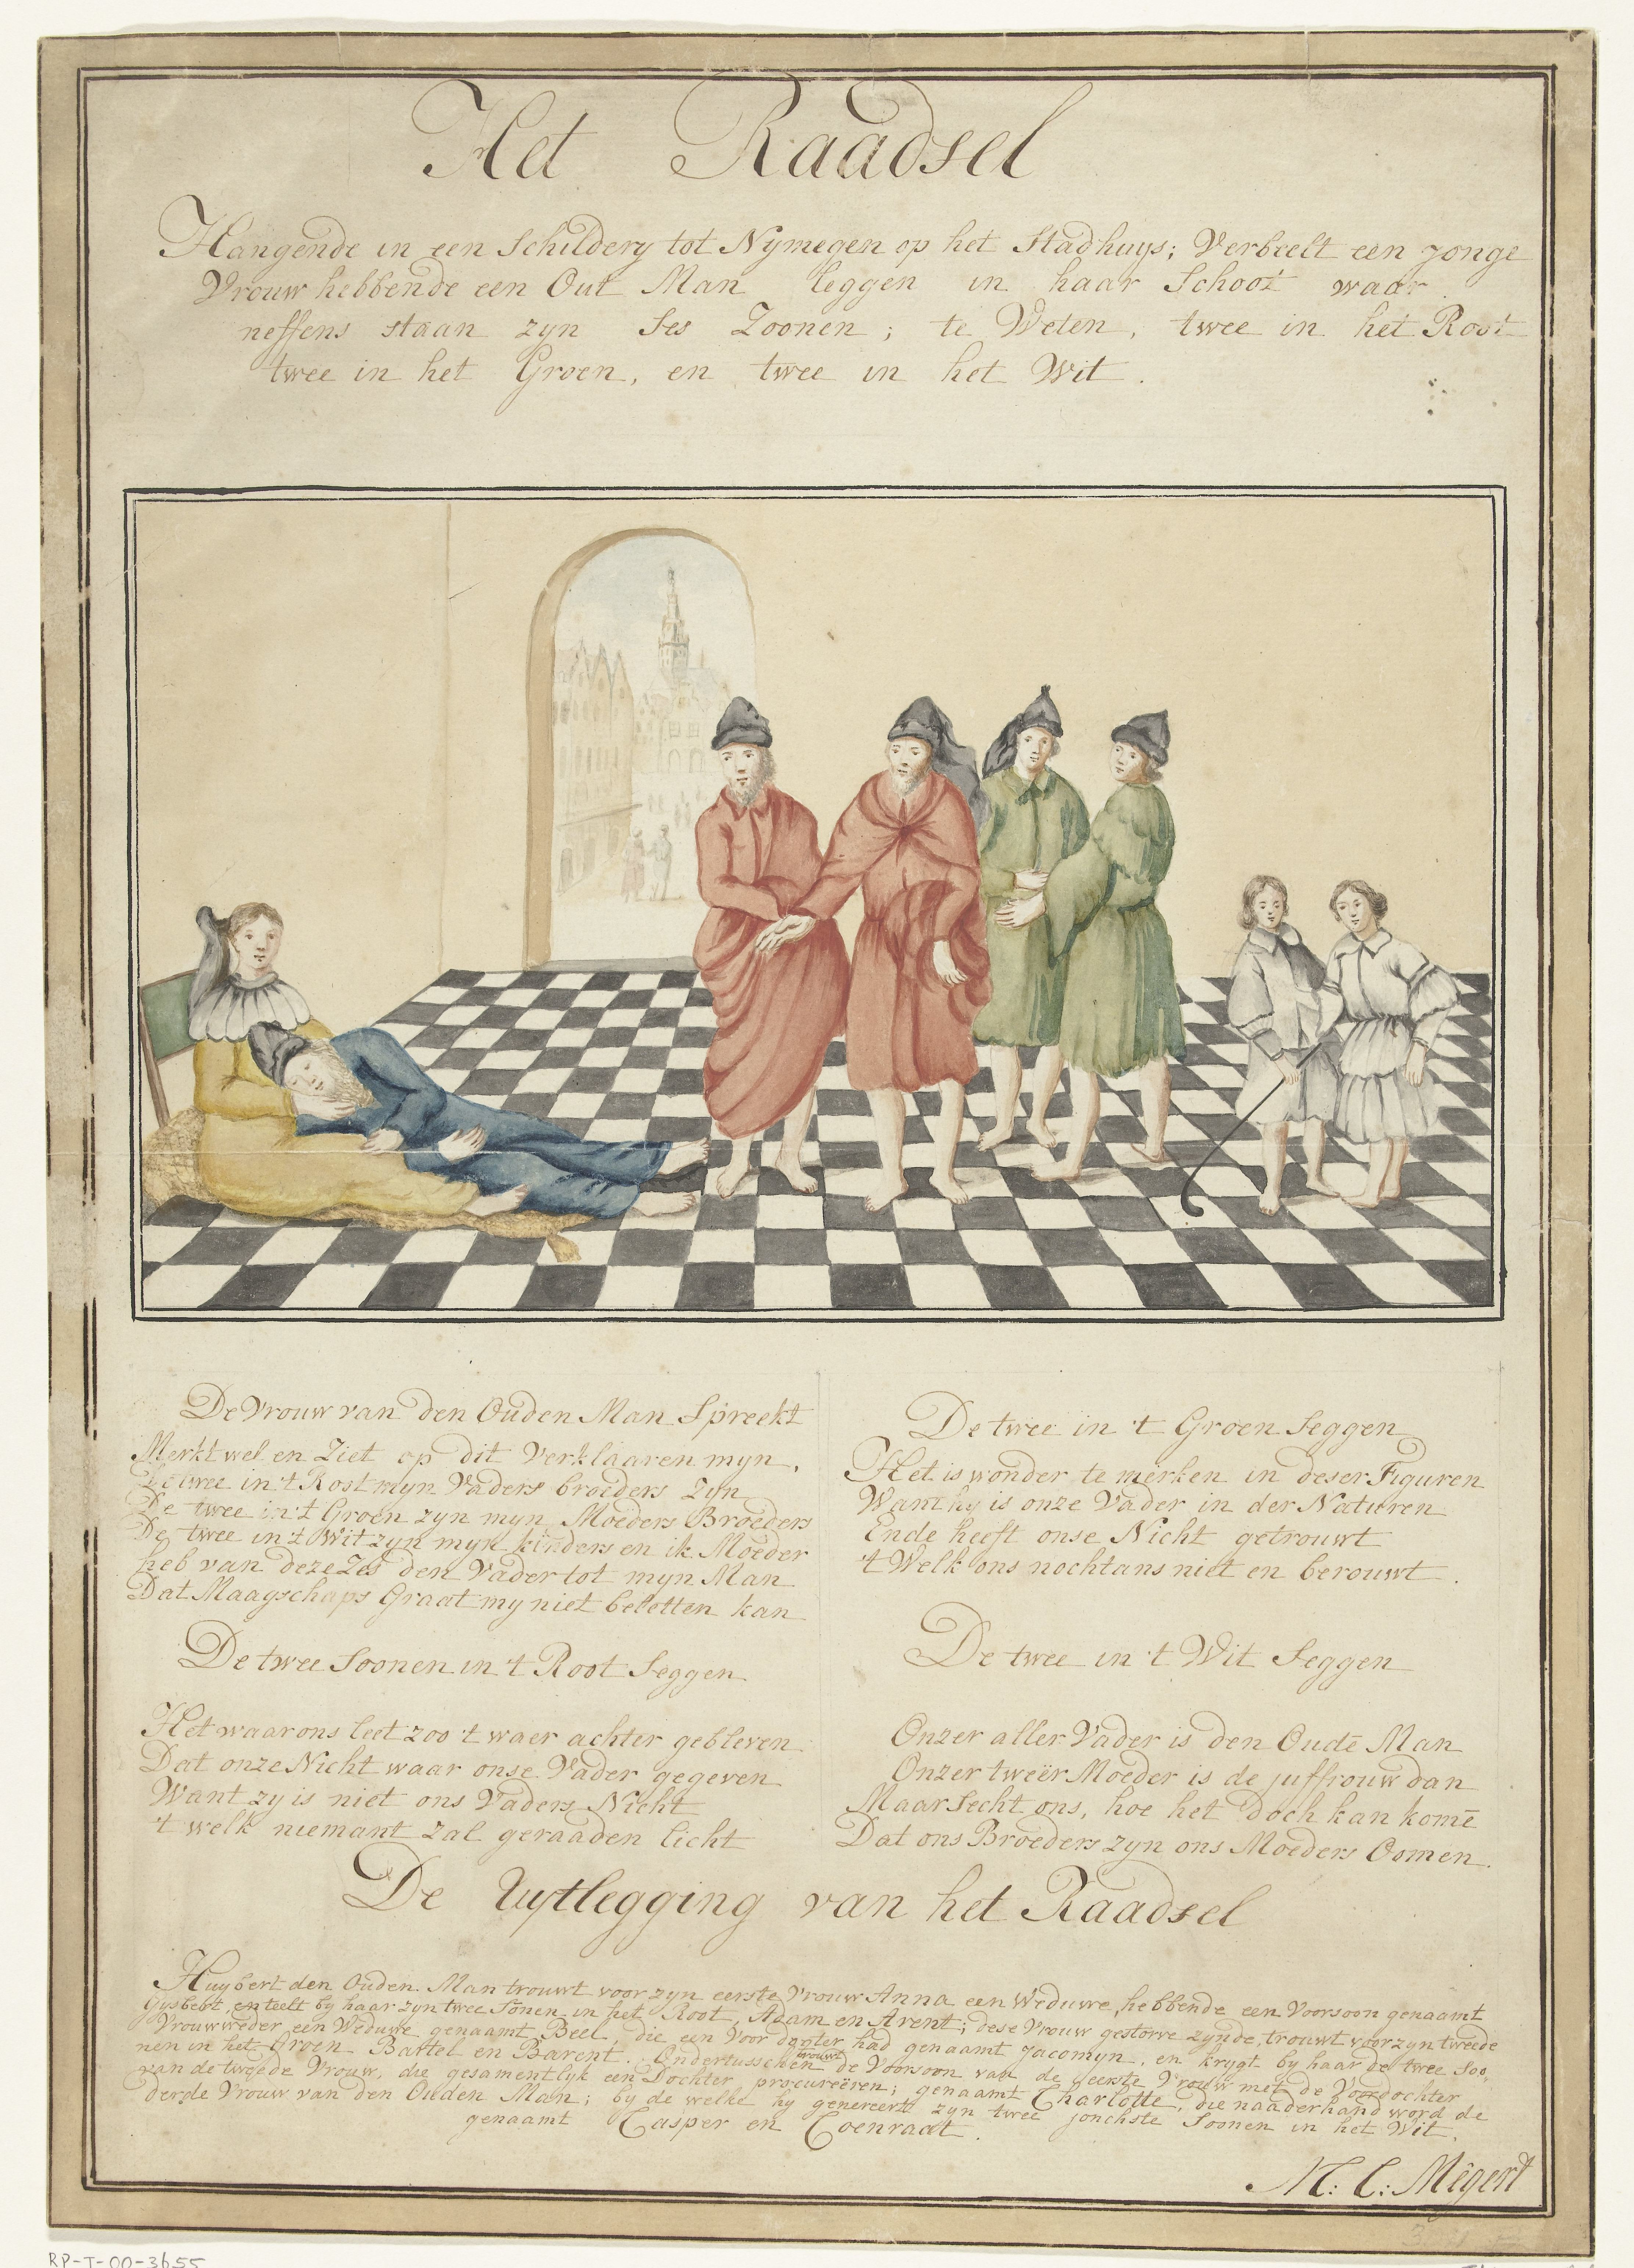 Het Raadsel
Hangende in een Schildery tot Nymegen op het Stadhuys; Verbeelt een jonge
Vrouw hebbende een Out Man leggen in haar Schoot waar
neffens staan zyn Ses Zoonen; te Weten, twee in het Root
twee in het Groen, en twee in het Wit.
De Vrouw van den Ouden Man Spreekt
Merkt wel en Ziet op dit Verklaaren myn,
De twee in 't Root myn Vaders broeders Zyn
De twee in 't Groen zyn myn Moeders Broeders
De twee in 't Wit zyn myn kinders en ik Moeder
heb van deze Zes den Vader tot myn Man
Dat Maagschaps Graat my niet beletten kan
De twee Soonen in 't Root Seggen
Het waar ons leet zoo 't waer achter gebleven
Dat onze Nicht waar onse Vader gegeven
Want zy is niet ons Vaders Nicht
't welk niemant zal geraaden licht
De twee in 't Groen Seggen
Het is wonder te merken in deser Figuren
Want hy is onze Vader in der Naturen
Ende heeft onse Nicht getrouwt
't Welk ons nochtans niet en berouwt.
De twee in 't Wit Seggen
Onzer aller Vader is den Oudē Man
Onzer tweër Moeder is de juffrouw dan
Maar Secht ons, hoe het doch kan komē
Dat ons Broeders zyn ons Moeders Oomen.
De Uytlegging van het Raadsel
Huybert den Ouden Man trouwt voor zyn eerste Vrouw Anna een Weduwe, hebbende een Voorsoon genaamt
Gysbert, en teelt by haar zyn twee Sonen in het Root, Adam en Arent; dese Vrouw gestorve zynde, trouwt voor zyn tweede
Vrouw weder een Weduwe genaamt Beel, die een Voor dogter had genaamt Jacomyn, en krygt by haar de twee Soo-
nen in het Groen Bartel en Barent. Ondertusschen trouwt de Voorsoon van de eerste Vrouw met de Voordochter
van de tweede Vrouw, die gesamentlyk een Dochter procureëren; genaamt Charlotte, die naaderhand word de
derde Vrouw van den Ouden Man; by de welke hy genereert zyn twee jonchste Soonen in het Wit,
genaamt Casper en Coenraat.
M: C: Mégert
RP-T-00-3655